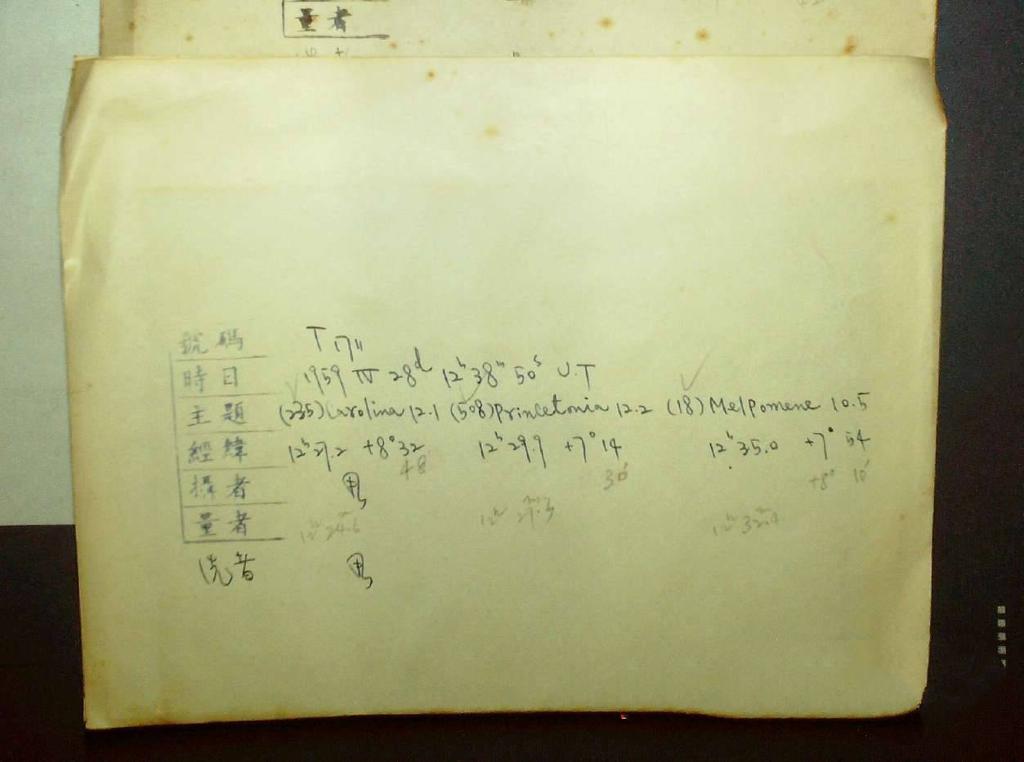 量者
號碼 T 1711
時日 1959 IV 28d 12h 38m 50s U.T
主題 (235) Carolina 12.1 (508) Princetonia 12.2 (18) Melpomene 10.5
經緯 12h 27.2 +8° 32 12h 29.9 +7° 14 12h 35.0 +7° 54
48 36' +8° 10'
攝者
量者 12h 24.6 12h 27.3 12h 32.4
洗者